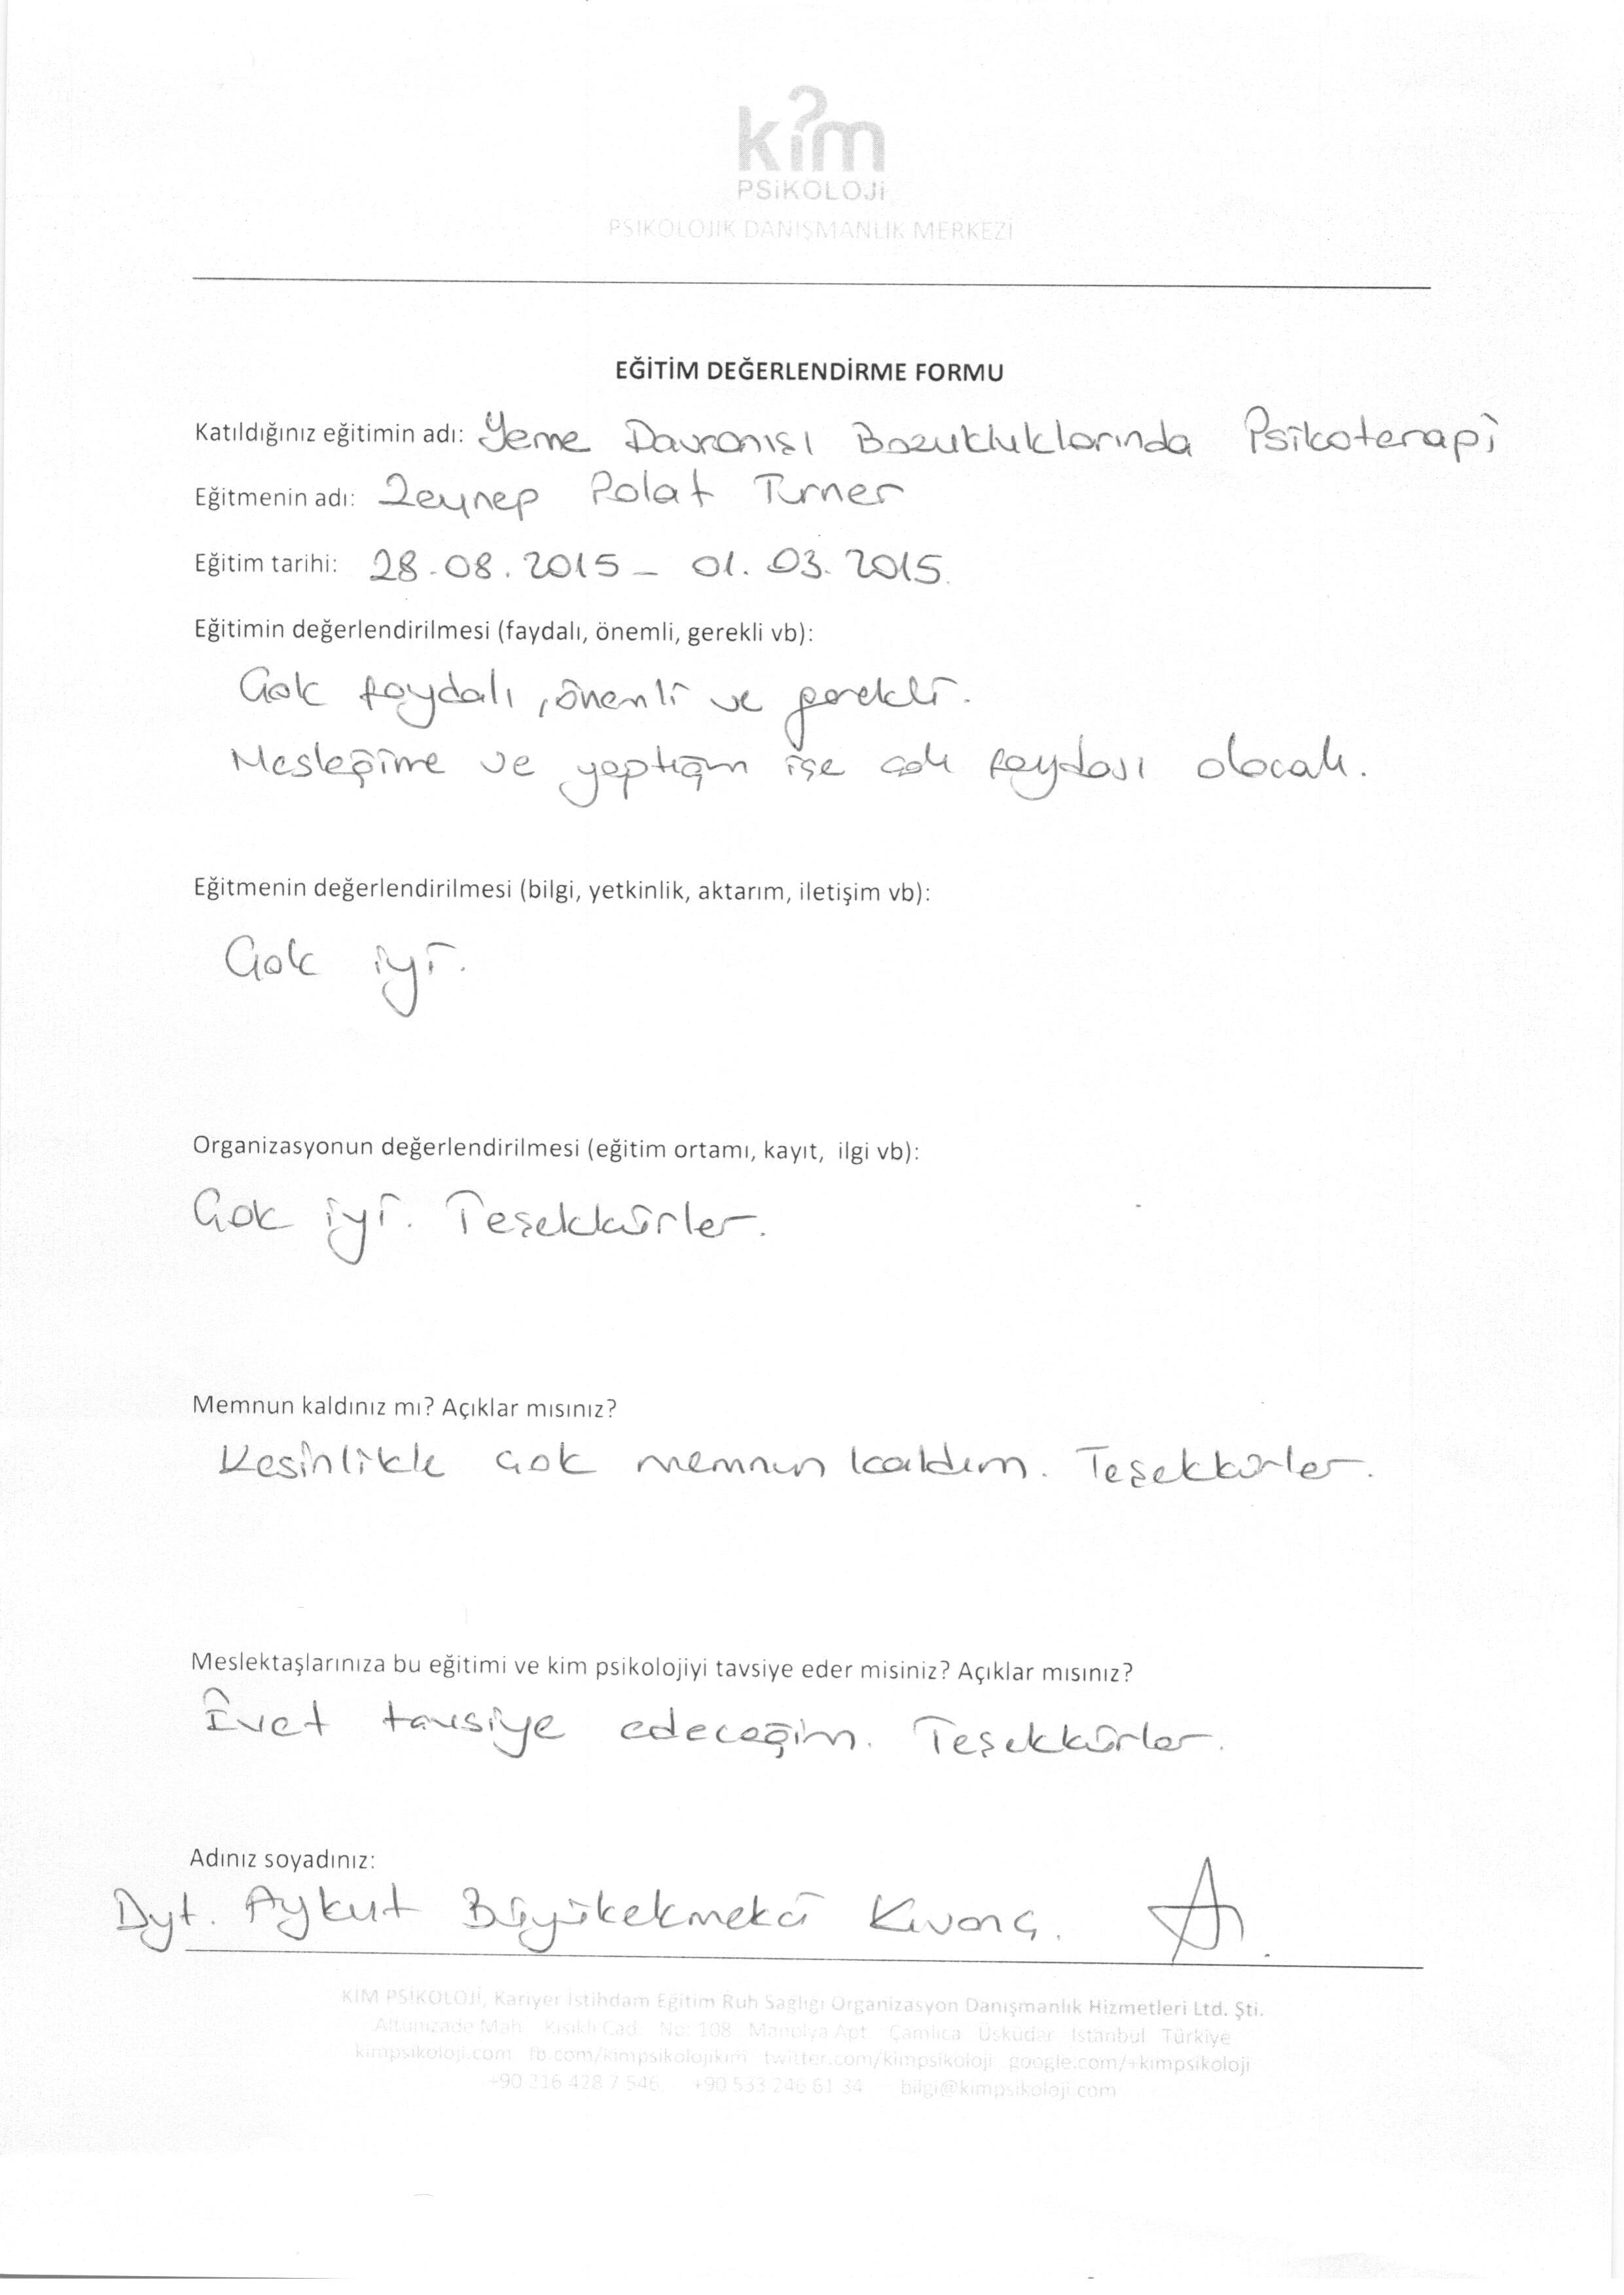 kim
PSİKOLOJİ
PSİKOLOJİK DANIŞMANLIK MERKEZİ
EĞİTİM DEĞERLENDİRME FORMU
Katıldığınız eğitimin adı: Yeme Davranışı Bozukluklarında Psikoterapi
Eğitmenin adı: Zeynep Polat Turner
Eğitim tarihi: 28.08.2015 - 01.03.2015.
Eğitimin değerlendirilmesi (faydalı, önemli, gerekli vb):
Çok faydalı, önemli ve gerekli.
Mesleğime ve yaptığım işe çok faydası olacak.
Eğitmenin değerlendirilmesi (bilgi, yetkinlik, aktarım, iletişim vb):
Çok iyi.
Organizasyonun değerlendirilmesi (eğitim ortamı, kayıt, ilgi vb):
Çok iyi. Teşekkürler.
Memnun kaldınız mı? Açıklar mısınız?
Kesinlikle çok memnun kaldım. Teşekkürler.
Meslektaşlarınıza bu eğitimi ve kim psikolojiyi tavsiye eder misiniz? Açıklar mısınız?
Evet tavsiye edeceğim. Teşekkürler.
Adınız soyadınız:
Dyt. Aykut Büyükekmekci Kıvanç.
KİM PSİKOLOJİ, Kariyer İstihdam Eğitim Ruh Sağlığı Organizasyon Danışmanlık Hizmetleri Ltd. Şti.
Altunizade Mah. Kısıklı Cad. No: 108 Apt. Çamlıca Üsküdar İstanbul Türkiye
kimpsikoloji.com fb.com/kimpsikolojikim twitter.com/kimpsikoloji google.com/+kimpsikoloji
+90 216 428 7 546 +90 533 246 61 34 bilgi@kimpsikoloji.com